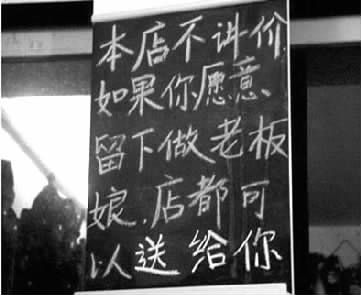 本店不讲价
如果你愿意、
留下做老板
娘．店都可
以送给你